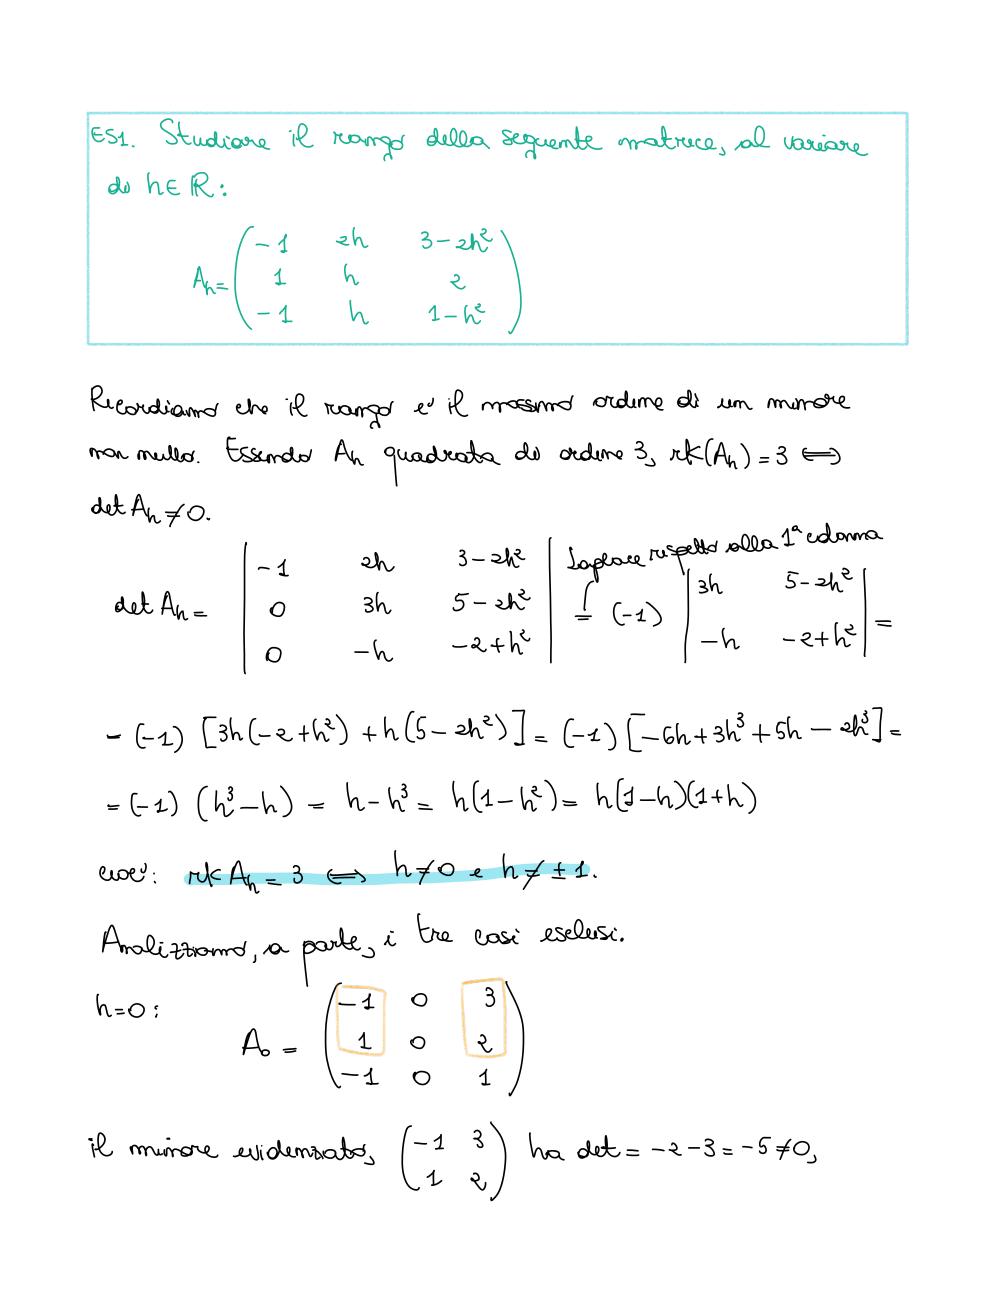 ES1. Studiare il rango della seguente matrice, al variare
di h∈ℝ:
A_h = ( -1 2h 3-2h²
1 h 2
-1 h 1-h² )
Ricordiamo che il rango e' il massimo ordine di un minore
non nullo. Essendo A_h quadrata di ordine 3, rk(A_h) = 3 ⟺
det A_h ≠ 0.
det A_h = | -1 2h 3-2h² |
| 0 3h 5-2h² |
| 0 -h -2+h² |
Laplace rispetto alla 1ª colonna
= (-1) | 3h 5-2h² |
| -h -2+h² | =
- (-1) [3h(-2+h²) + h(5-2h²)] = (-1) [-6h+3h³+5h-2h³] =
= (-1) (h³-h) = h-h³ = h(1-h²) = h(1-h)(1+h)
cioe': rk A_h = 3 ⟺ h≠0 e h≠±1.
Analizziamo, a parte, i tre casi esclusi.
h=0:
A₀ = ( -1 0 3
1 0 2
-1 0 1 )
il minore evidenziato, ( -1 3
1 2 ) ha det = -2-3 = -5≠0,